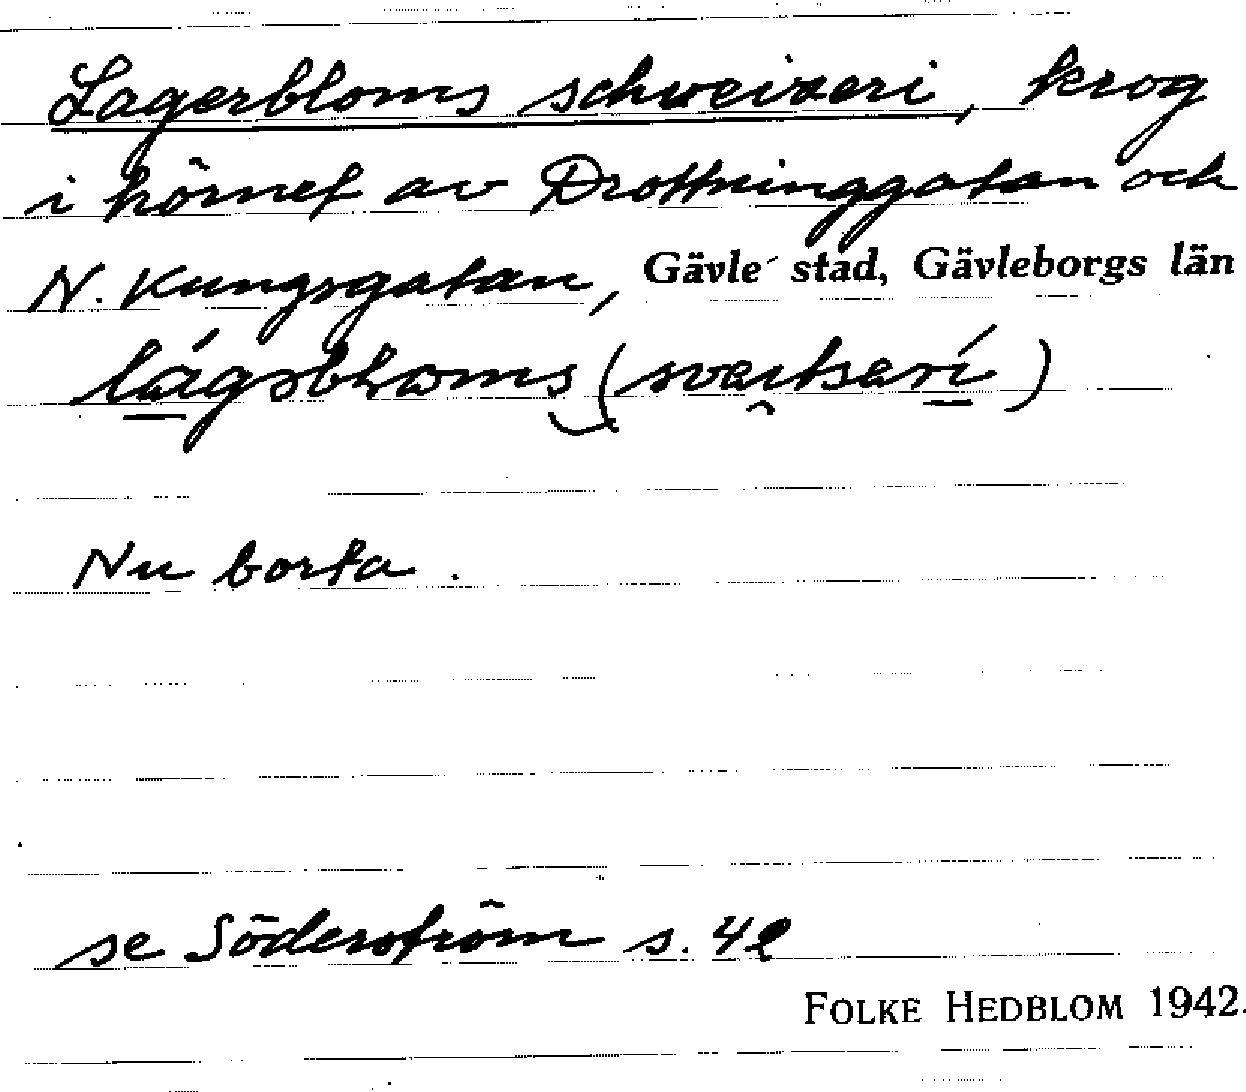 Lagerbloms schweizeri, krog
i hörnet av Drottninggatan och
N. Kungsgatan, Gävle stad, Gävleborgs län
(svæitseri)
Nu borta.
se Söderström s. 42
FOLKE HEDBLOM 1942.